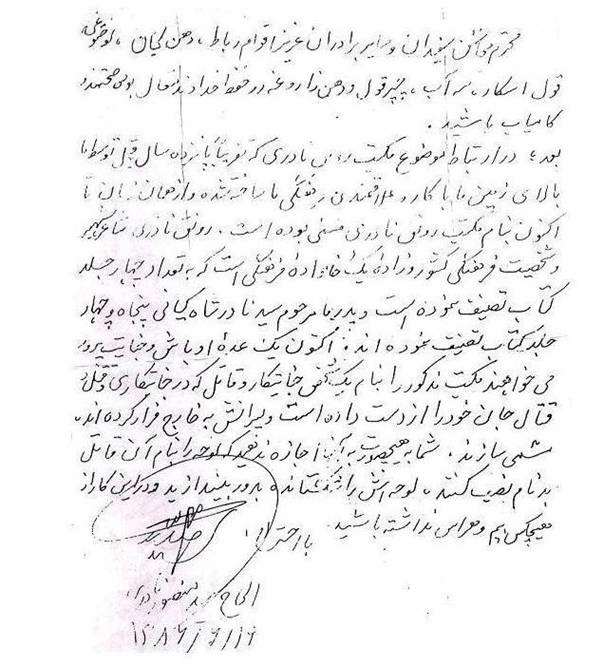 محترم موکشن سفیدان و سایر برادران عزیز اقوام رباط، دهن کیان،
قول اسکار، سر آب، قول و دهن زاروغه در حفظ خداوند متعال بوده صحتمند و
کامیاب باشید.
بعد؛ در ارتباط موضوع مکتب رونق نادری که تقریباً پانزده سال قبل توسط ما
بالای زمین ما با کار و علاقمندی فرهنگی ما ساخته شده و از همان زمان تا
اکنون بنام مکتب رونق نادری مسمی بوده است. رونق نادری شاعر شهیر
و شخصیت فرهنگی کشور و زادهٔ یک خانوادهٔ فرهنگی است که به تعداد چهار جلد
کتاب تصنیف نموده است و پدر ما مرحوم سید نادرشاه کیانی پنجاه و چهار
جلد کتاب تصنیف نموده اند. اکنون یک عدهٔ اوباش و جنایت پرور
می خواهند مکتب مذکور را بنام یک شخص جنایتکار و قاتل که در جنایتکاری و قتل و
قتال جان خود را از دست داده است و پسرانش به خارج فرار کرده اند،
مسمی سازند. شما به هیچصورت به آنها اجازه ندهید که لوحه را بنام آن قاتل
بد نام نصب کنند، لوحه اش را بدور بیندازید و در این کار از
هیچکس بیم و هراس نداشته باشید.
با احترام
الحاج سید منصور نادری
۱۳۸۶/۶/۱۶